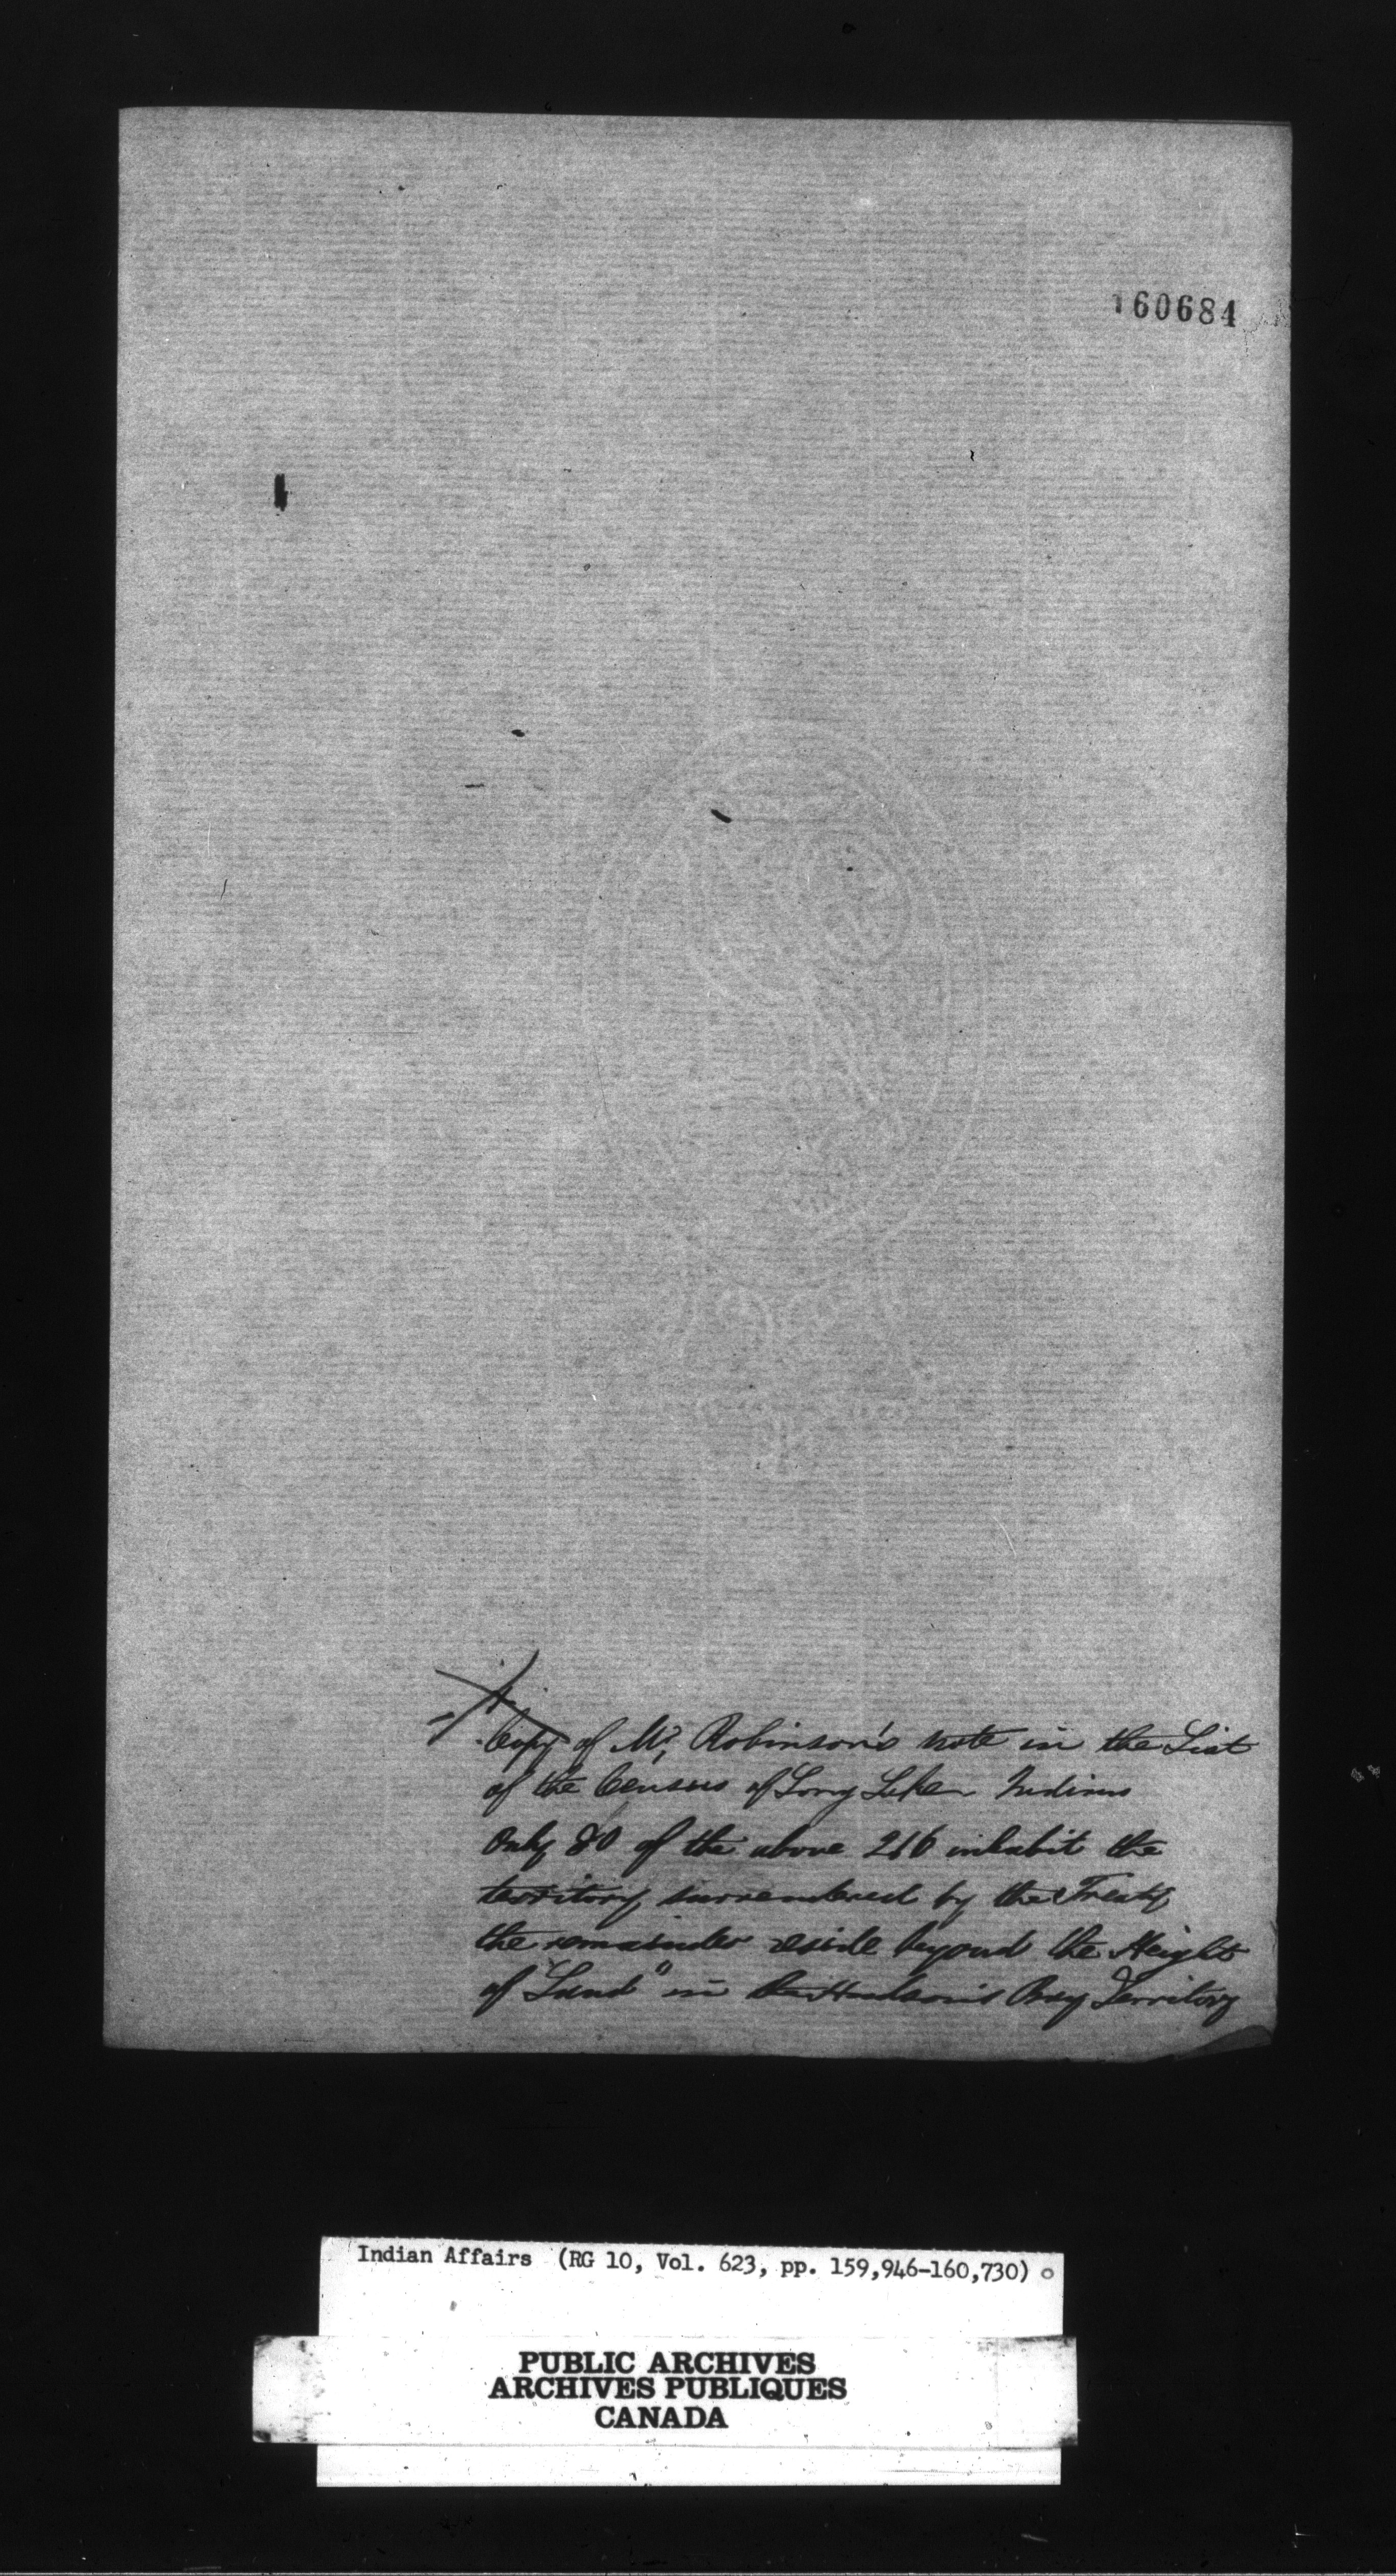 160684
Copy of Mr. Robinson's note in the List
of the Census of Long Lake Indians
Only 80 of the above 216 inhabit the
territory surrendered by the Treaty
the remainder reside beyond the Height
of Land" in the Hudson's Bay Territory
Indian Affairs (RG 10, Vol. 623, pp. 159,946-160,730)
PUBLIC ARCHIVES
ARCHIVES PUBLIQUES
CANADA